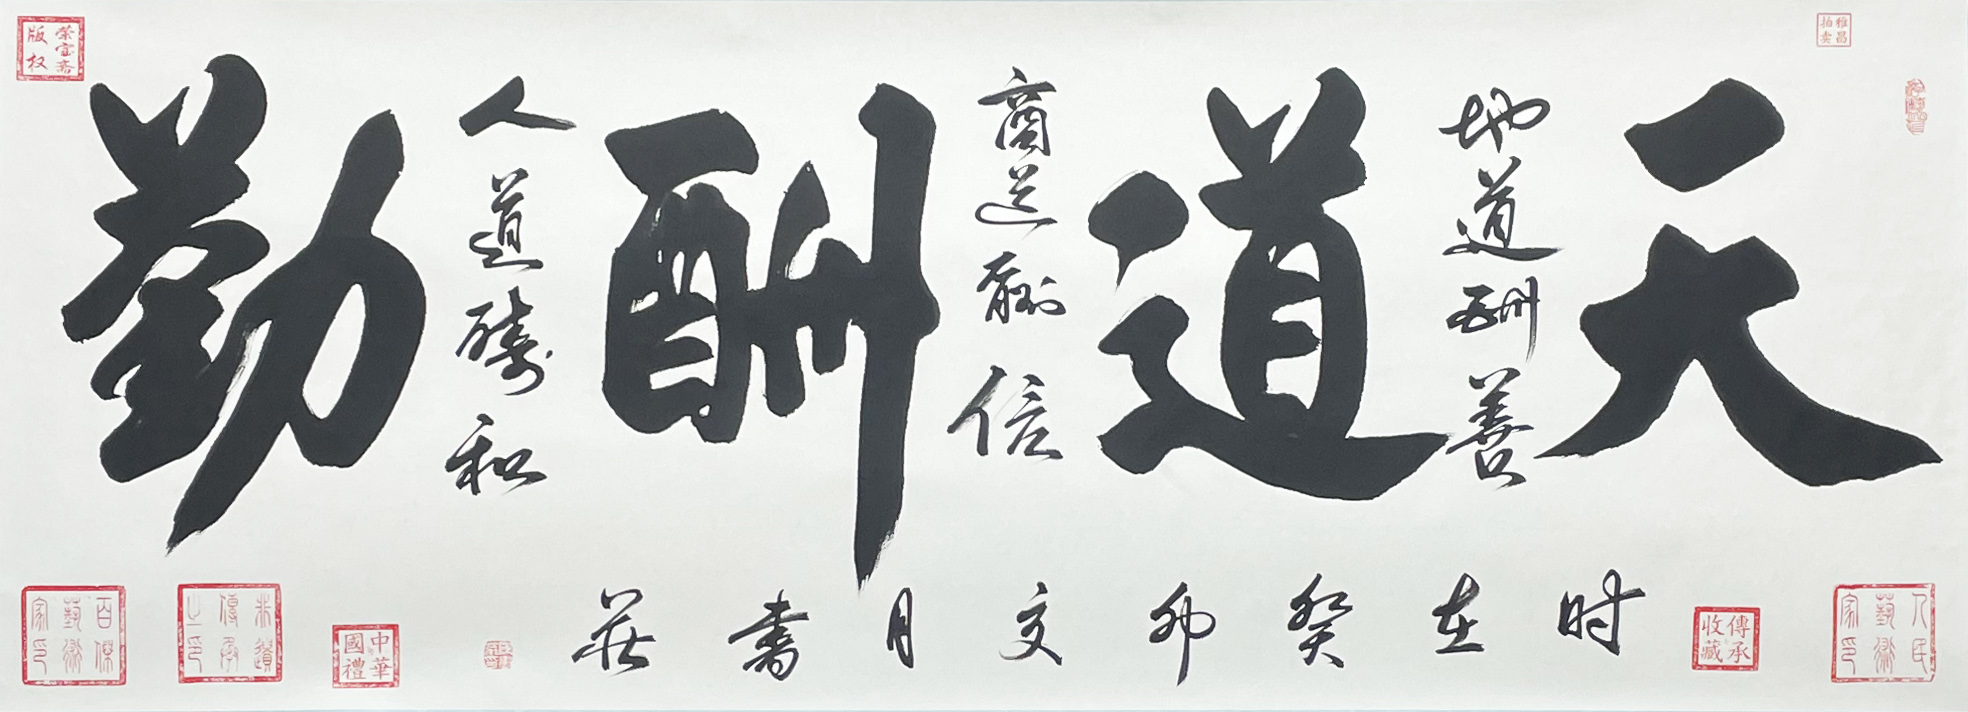 天道酬勤
地道酬善
商道酬信
人道酬和
时在癸卯文月书庄
雅昌拍卖
荣宝斋版权
人民艺术家印
傳承收藏
中華國禮
非遺傳承之印
百傑藝術家印